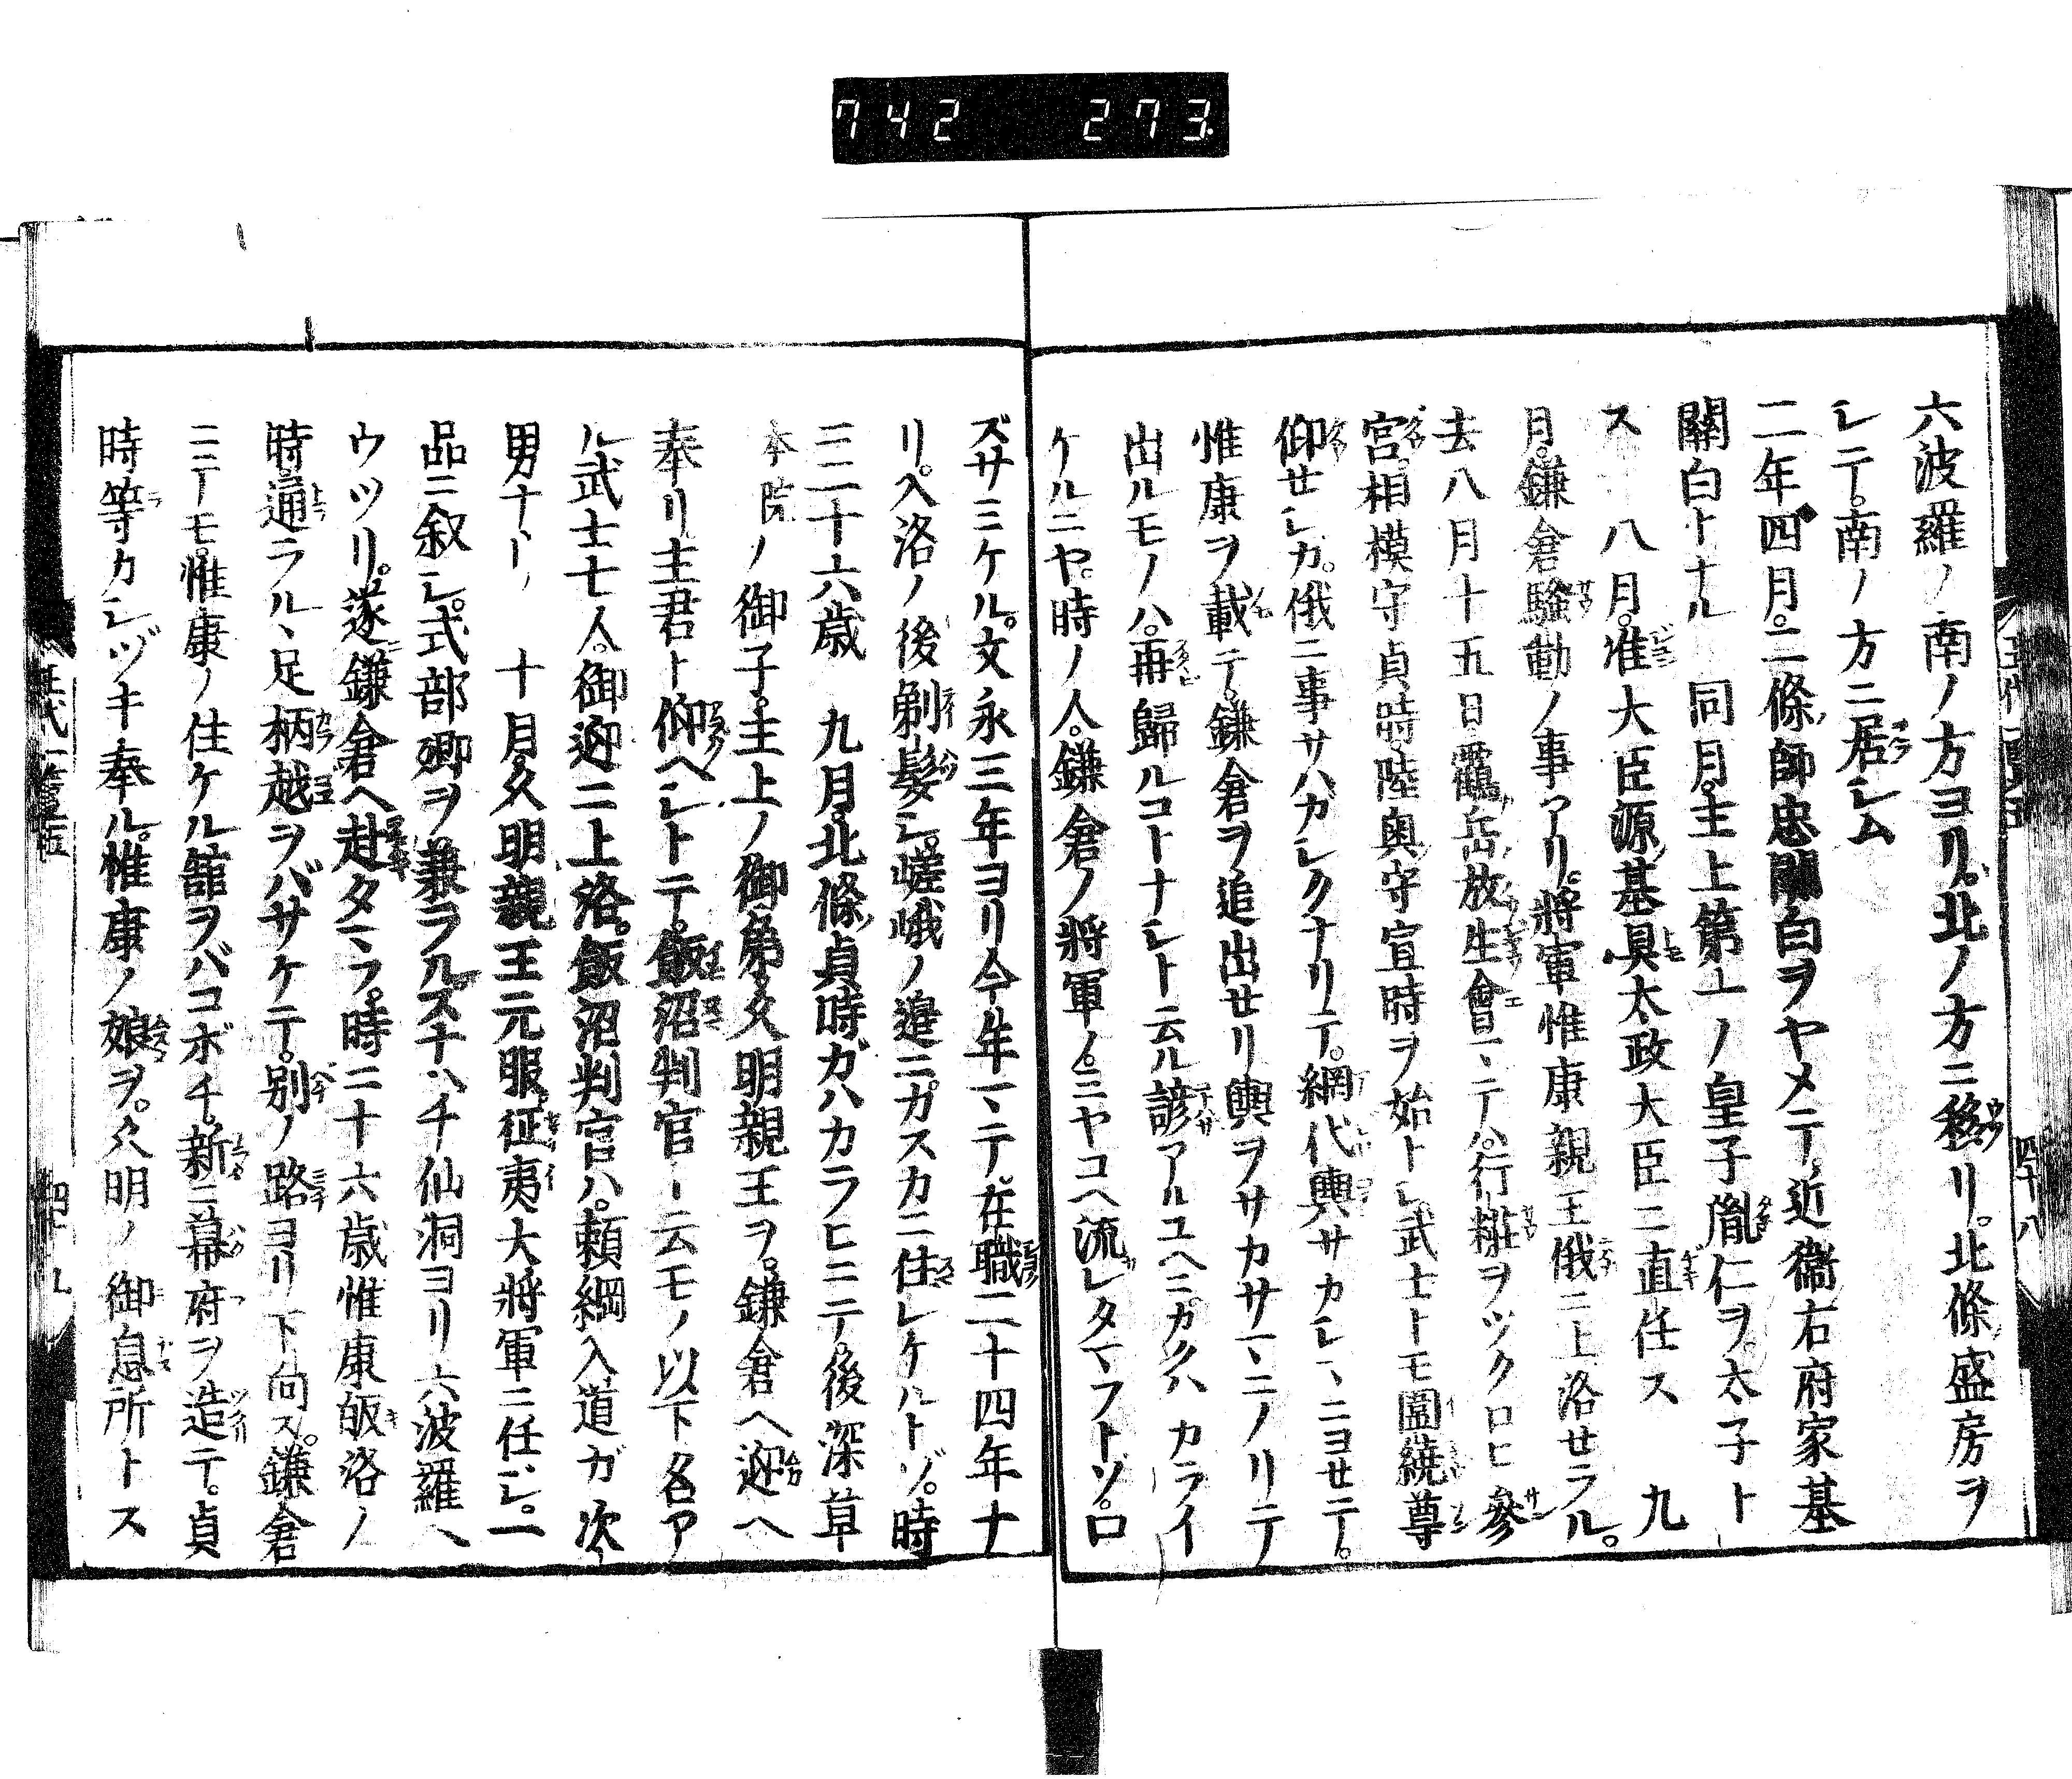 742 273
六波羅ノ南ノ方ヨリ。北ノ方ニ移リ。北條盛房ヲ
シテ。南ノ方ニ居シム
二年四月。二條師忠關白ヲヤメテ。近衞右府家基
關白トナル 同月。主上第一ノ皇子胤仁ヲ。太子ト
ス 八月。准大臣源基具太政大臣ニ直任ス 九
月。鎌倉騷動ノ事アリ。將軍惟康親王俄ニ上洛セラル。
去八月十五日。靏岳放生會マテハ。行粧ヲツクロヒ參
宮。相模守貞時。陸奥守宣時ヲ始トシ武士トモ圍繞尊
仰セシカ。俄ニ事サハカシクナリテ。網代輿サカシマニヨセテ。
惟康ヲ載テ。鎌倉ヲ追出セリ輿ヲサカサマニノリテ
出ルモノハ。再歸ルコトナシト云ル諺アルユヘニカクハカライ
ケルニヤ。時ノ人。鎌倉ノ將軍ノ。ミヤコヘ流レタマフトゾ。口
ズサミケル。文永三年ヨリ今年マテ。在職二十四年ナ
リ。入洛ノ後剃髮シ。嵯峨ノ邉ニカスカニ住シケルトゾ。時
ニ二十六歳 九月。北條貞時ガハカラヒニテ。後深草
本院ノ御子。主上ノ御弟久明親王ヲ。鎌倉ヘ迎ヘ
奉リ主君ト仰ヘシトテ。飯沼判官ト云モノ以下名ア
ル武士七人。御迎ニ上洛。飯沼判官ハ。頼綱入道ガ次
男ナリ 十月久明親王元服。征夷大將軍ニ任シ。一
品ニ叙シ。式部卿ヲ兼ラル。スナハチ仙洞ヨリ六波羅ヘ
ウツリ。遂鎌倉ヘ赴タマフ。時ニ十六歳惟康皈洛ノ
時通ラル丶足柄越ヲバサケテ。別ノ路ヨリ下向ス。鎌倉
ニテモ。惟康ノ住ケル舘ヲバコボチ。新ニ幕府ヲ造テ。貞
時等カシヅキ奉ル。惟康ノ娘ヲ。久明ノ御息所トス